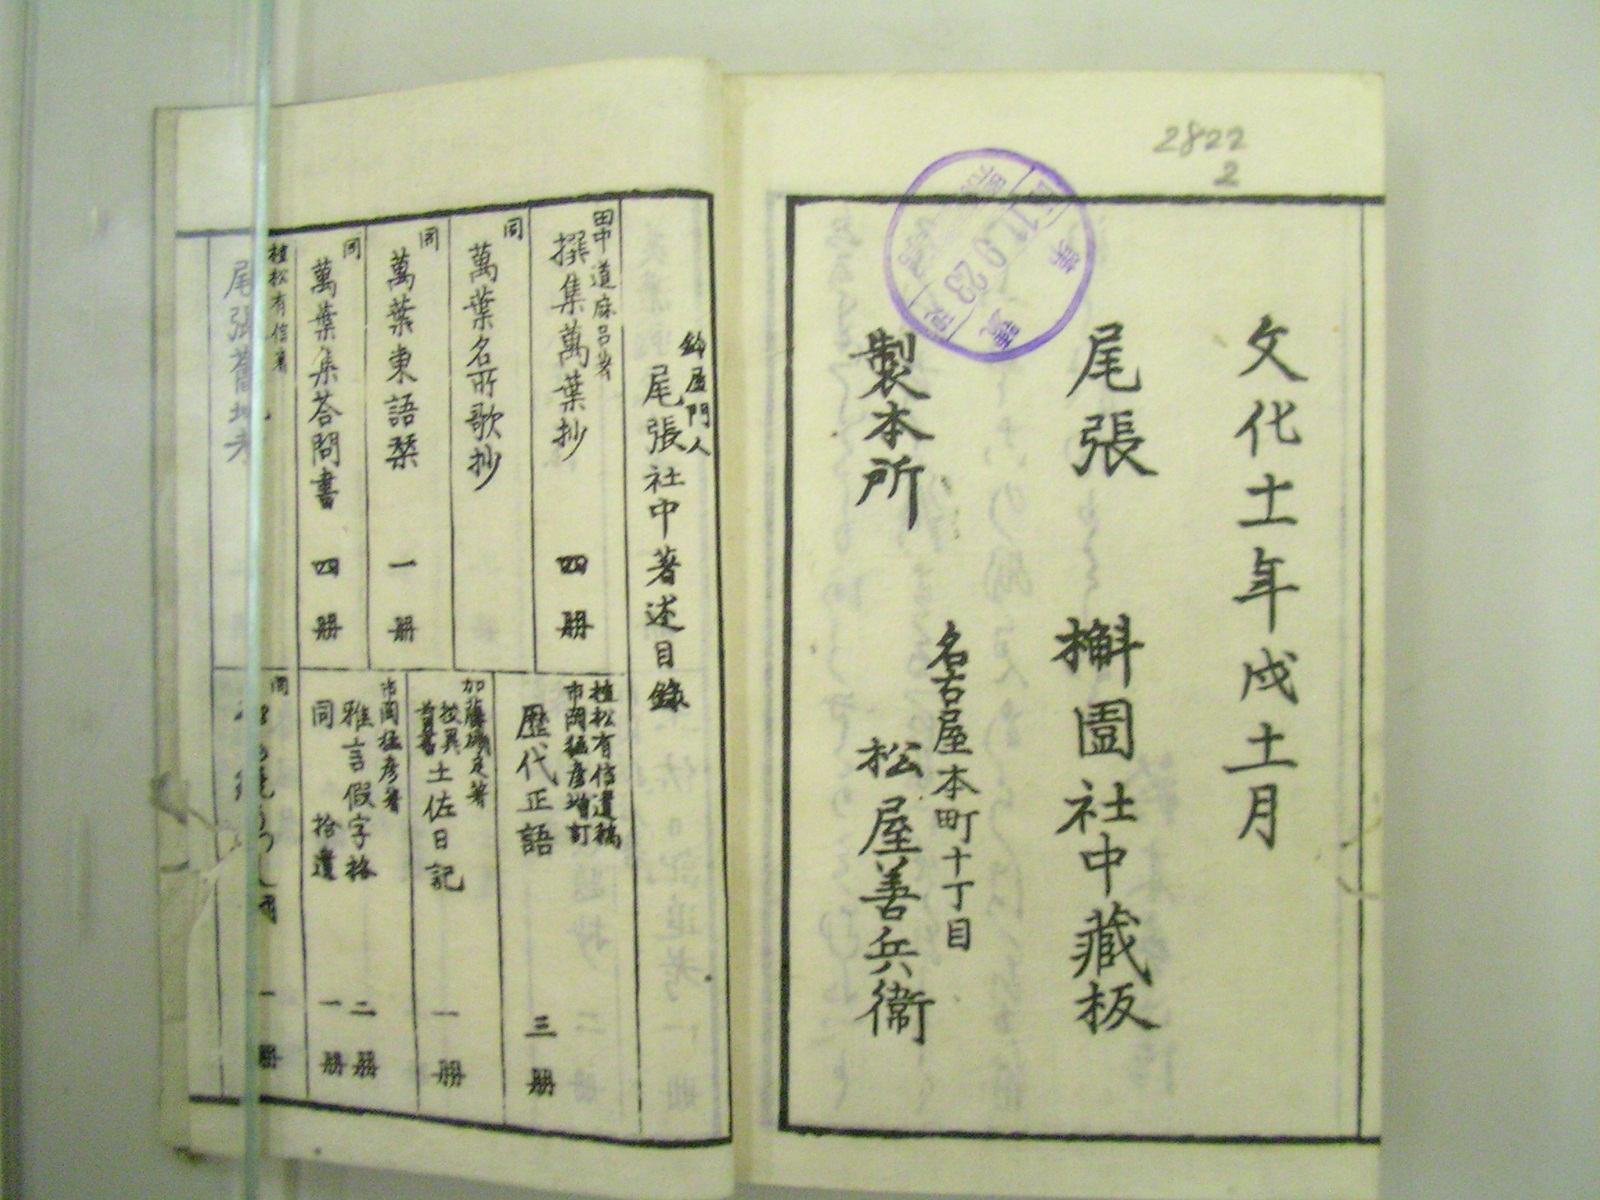 2822
2
11.9.23
文化十一年戌十一月
尾張 槲園社中藏板
製本所
名古屋本町十丁目
松屋善兵衞
鈴屋門人
尾張社中著述目錄
田中道麻呂著
撰集萬葉抄 四册
同
萬葉名所歌抄
同
萬葉東語栞 一册
同
萬葉集荅問書 四册
植松有信著
尾張舊地考
植松有信遺稿
市岡猛彥增訂
歷代正語 三册
加藤磯足著
土佐日記 一册
市岡猛彥著
雅言假字格 二册
同 拾遺 一册
同
一册